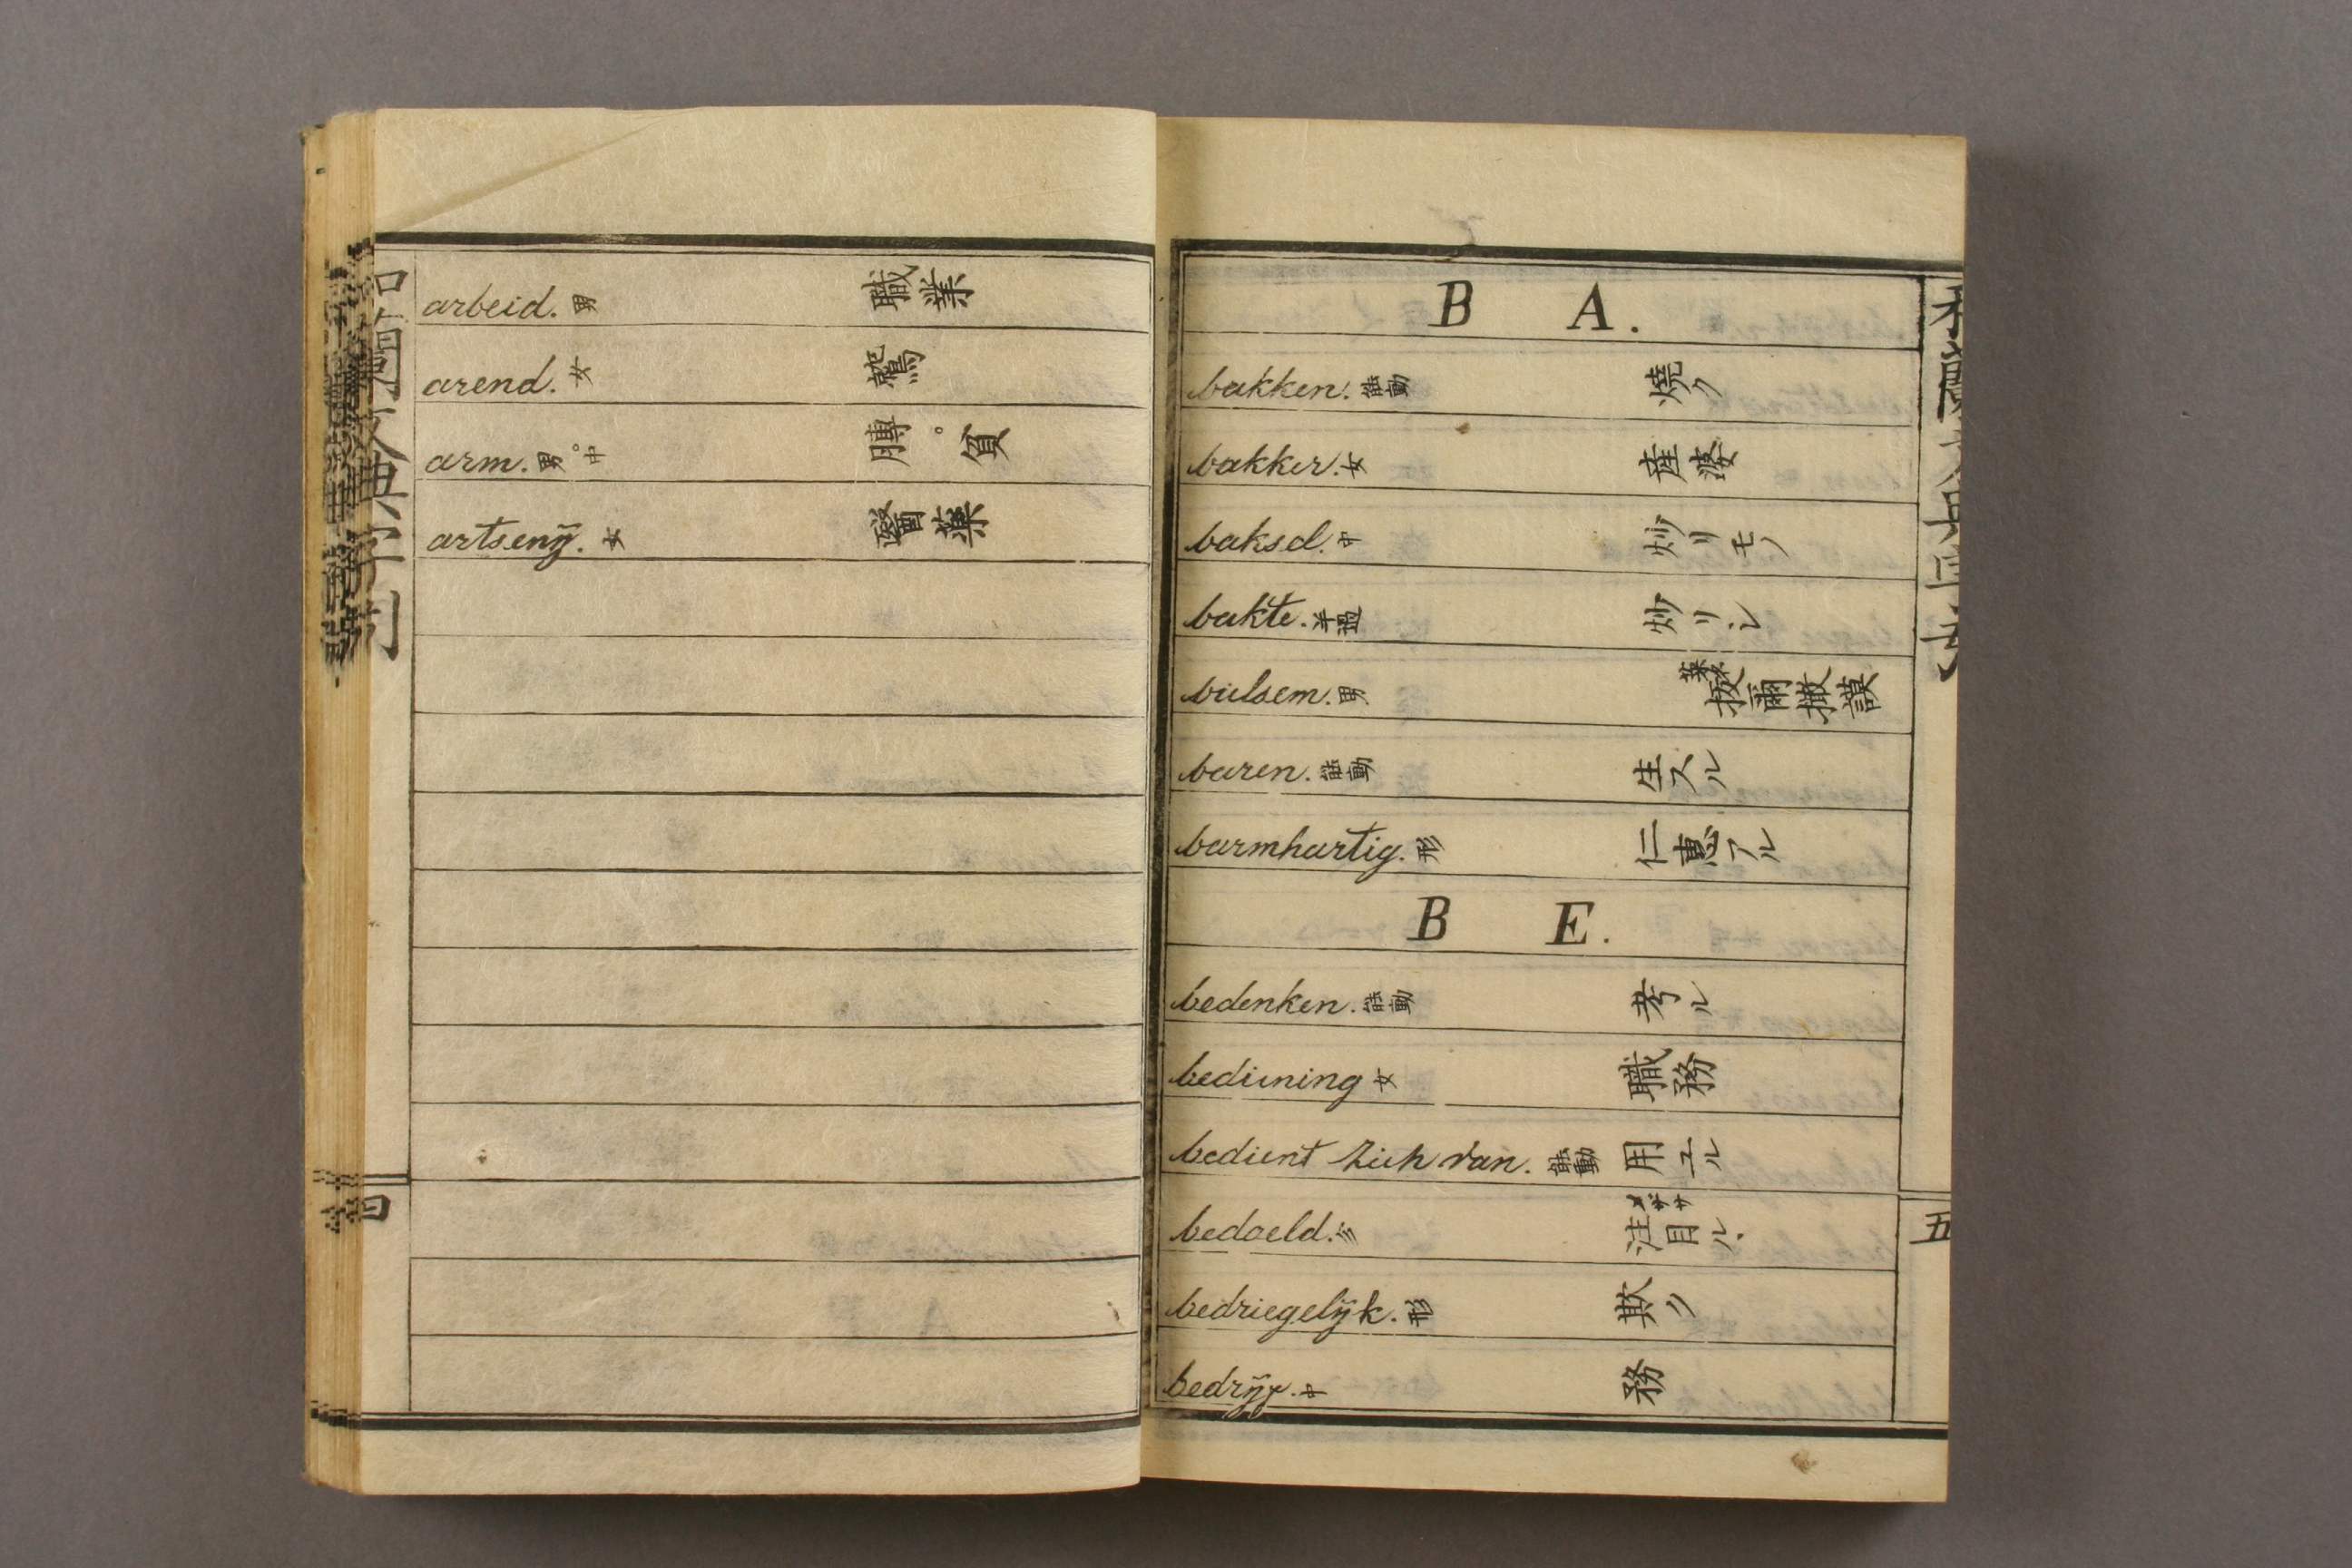 arbeid. 男 職業
arend. 女 鷲
arm. 男。中 膊。貧
artsenÿ. 女 醫藥
四
B A.
bakken. 能動 燒ク
bakker. 女 産婆
baksel. 中 炒リモノ
bakte. 半過 炒リシ
bulsem. 男 拔爾撒謨
baren. 能動 生スル
barmhartig. 形 仁惠アル
B E.
bedenken. 能動 考ル
bediening 女 職務
bedient zich van. 能動 用ユル
bedoeld. 注目ル
bedriegelÿk. 形 欺ク
bedrÿf. 中 務
五